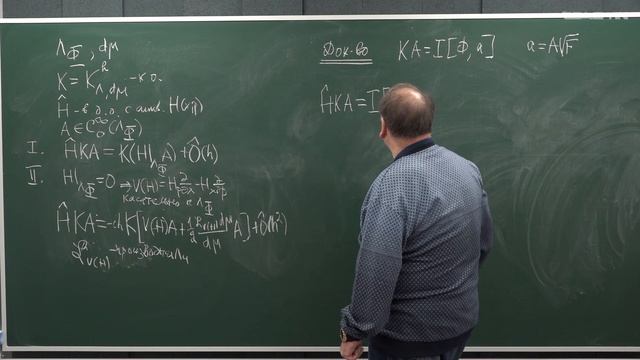 Λ_Φ, dμ
K = K^h_{Λ,dμ} - к.о.
Ĥ - h.д.о. с симв. H(x,p)
A ∈ C_0^∞(Λ_Φ)
I. ĤKA = K(H|_{Λ_Φ} A) + Ô(h)
II. H|_{Λ_Φ} = 0 ⇒ V(H) = H_p ∂/∂x - H_x ∂/∂p
касательно к Λ_Φ
ĤKA = -ih K[V(H)A + 1/2 (ℒ_{V(H)} dμ)/dμ A] + Ô(h²)
ℒ_{V(H)} - производная Ли
Док-во KA = I[Φ, a] a = A√F
ĤKA = I[